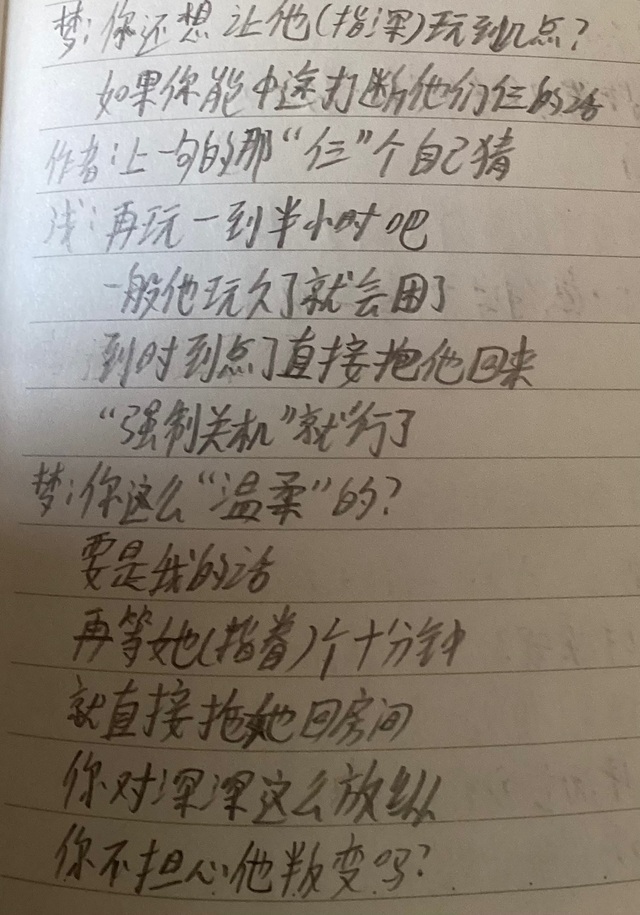 梦:你还想让他(指深)玩到几点?
如果你能中途打断他们仨的话
作者:上一句的那“仨”个自己猜
浅:再玩一到半小时吧
一般他玩久了就会困了
到时到点了直接抱他回来
“强制关机”就行了
梦:你这么“温柔”的?
要是我的话
再等她(指眷)个十分钟
就直接拖她回房间
你对深深这么放纵
你不担心他叛变吗?